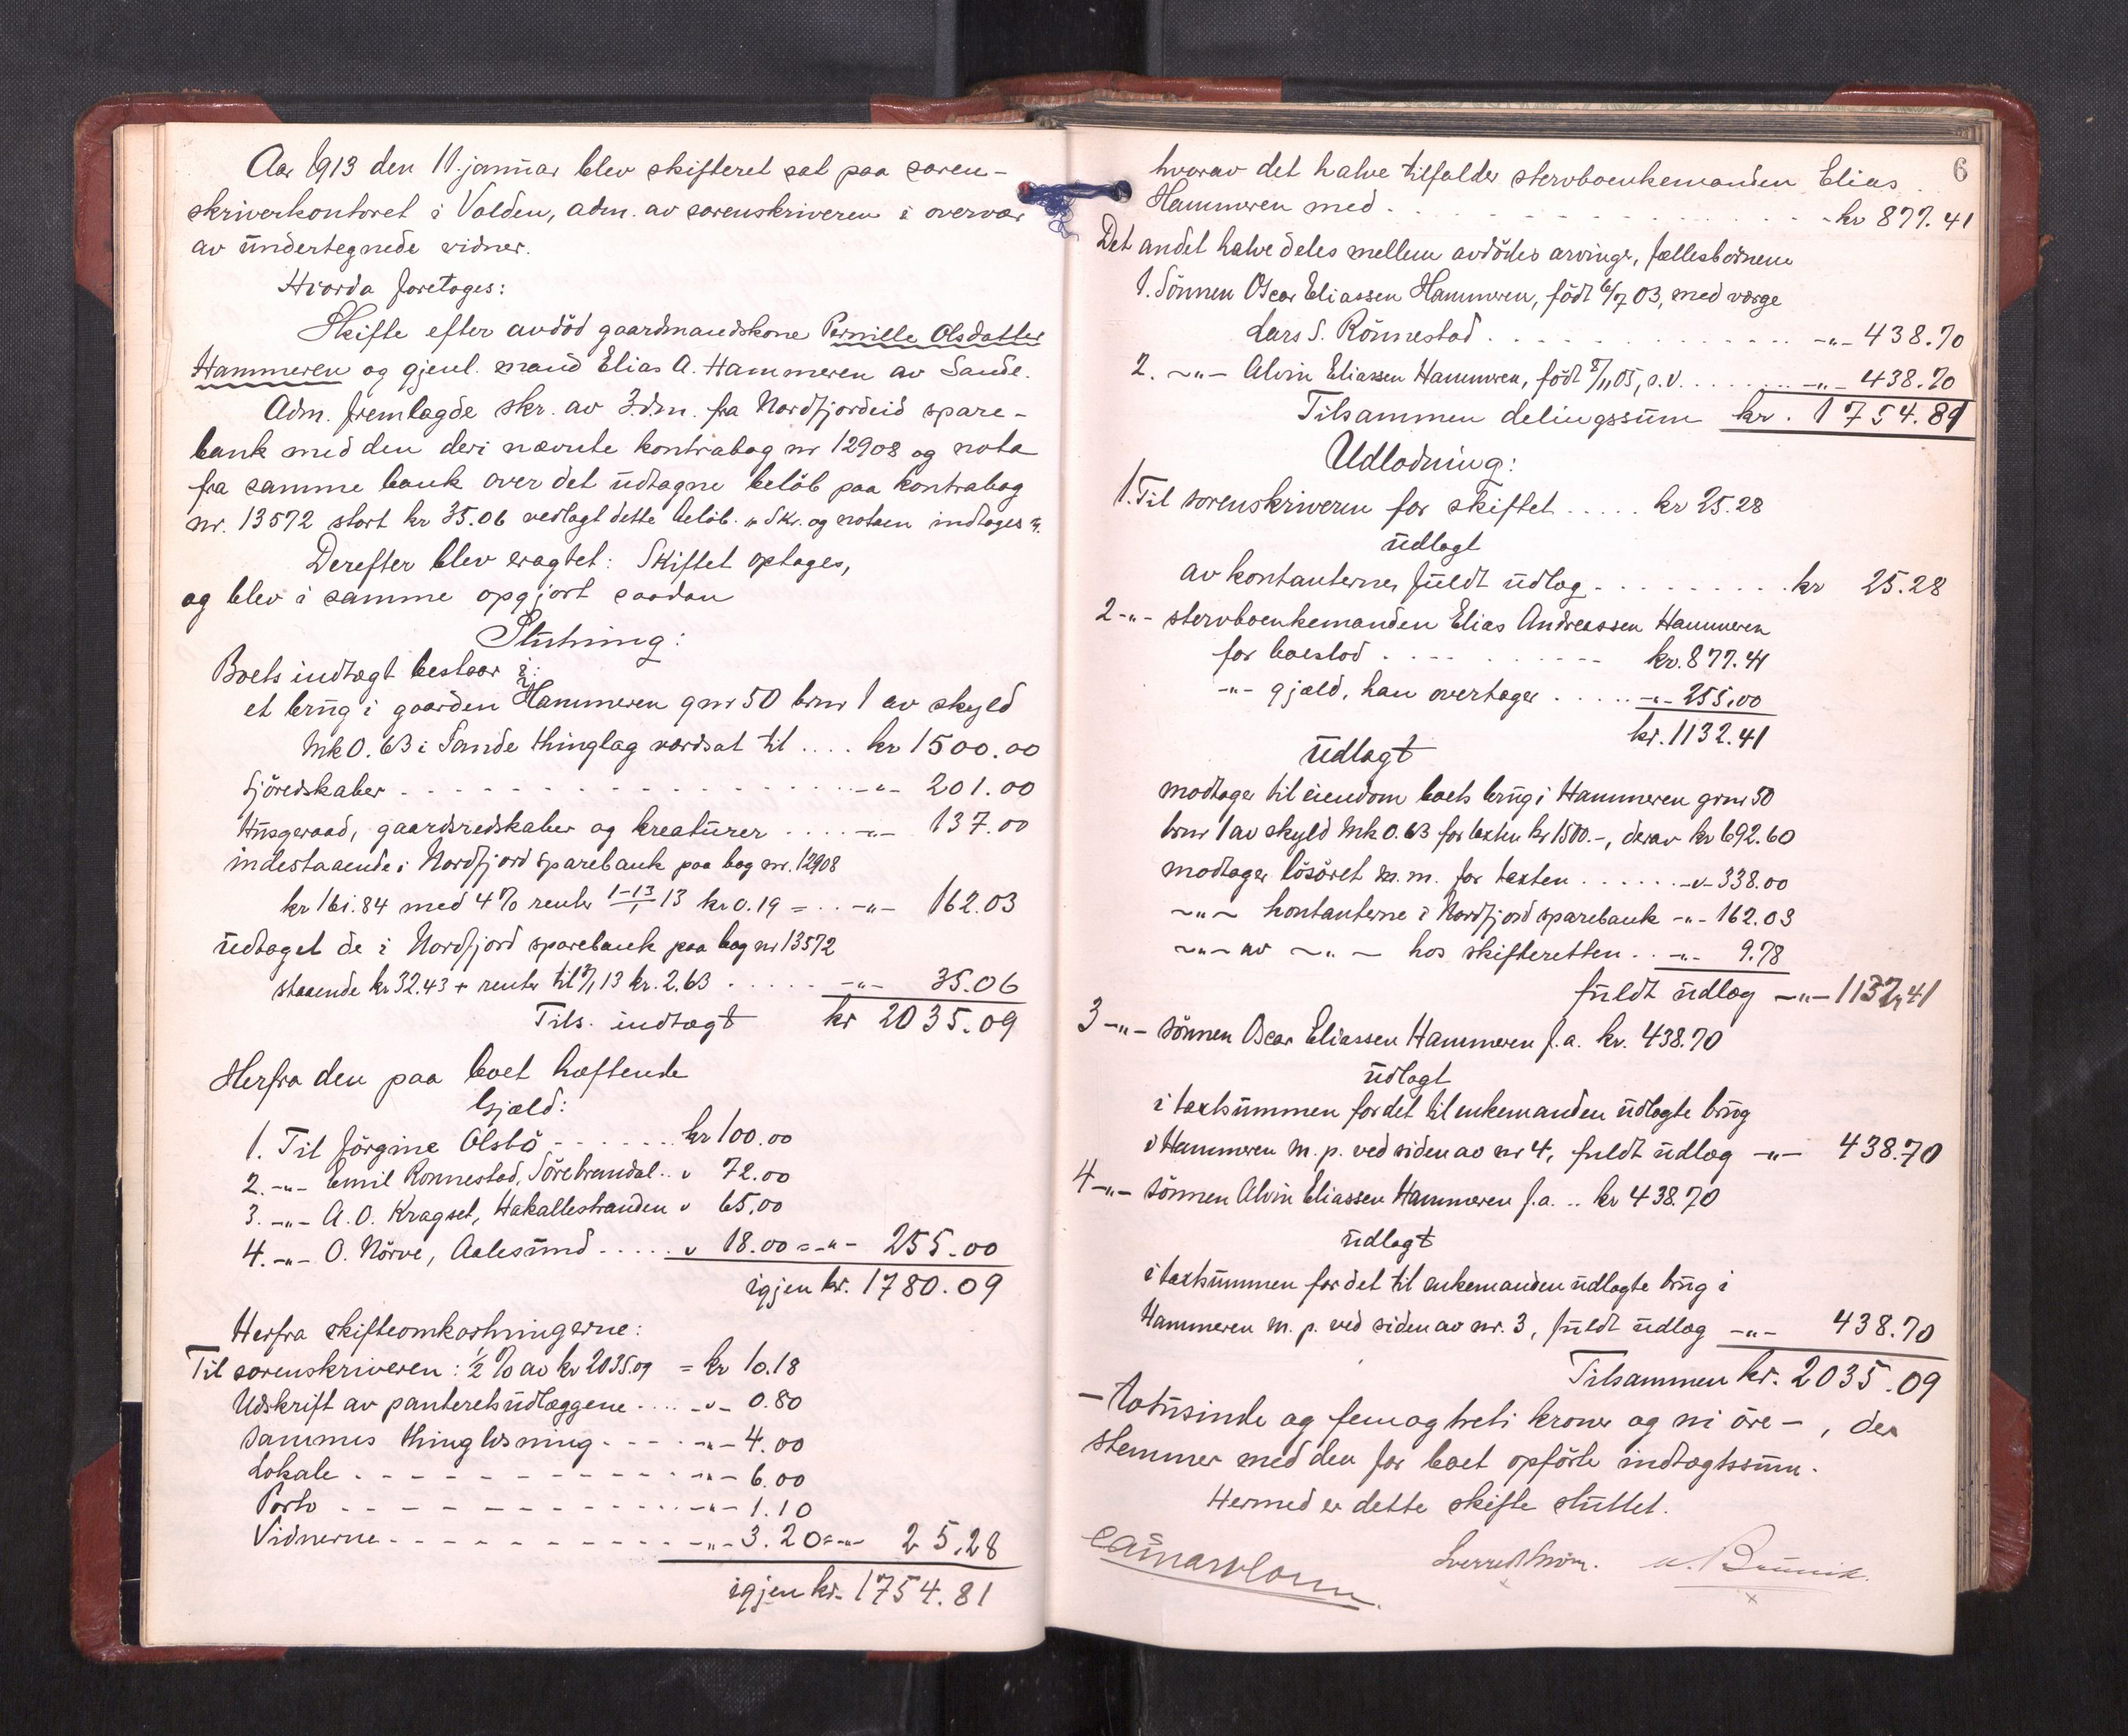 Aar 1913 den 11. januar blev skifteret sat paa soren-
skriverkontoret i Volden, adm. av sorenskriveren i overvær
av undertegnede vidner.
Hvorda foretages:
Skifte efter avdöd gaardmandskone Pernille Olsdatter
Hammeren og gjenl. mand Elias A. Hammeren av Sande.
Adm. fremlagde skr. av 3 dm. fra Nordfjordeid spare-
bank med den deri nævnte kontrabog nr 12908 og nota
fra samme bank over det udtagne belöb paa kontrabog
nr. 13572 stort kr 35.06 vedlagt dette belöb. „ Skr. og notaen indtages „.
Derefter blev eragtet: Skiftet optages,
og blev i samme opgjort saadan
Slutning:
Boets indtægt bestaar i:
et brug i gaarden Hammeren gnr 50 brnr 1 av skyld
Mk 0.63 i Sande thinglag værdsat til .... kr 1500.00
Sjöredskaber . . . . -"- 201.00
Husgeraad, gaardsredskaber og kreaturer .... -"- 137.00
indestaaende i Nordfjord sparebank paa bog nr. 12908
kr 161.84 med 4 % renter 1-13/1 13 kr 0.19 = .. -"- 162.03
udtaget de i Nordfjord sparebank paa bog nr 13572
staaende kr 32.43 + renter til 2/1 13 kr. 2.63 ..... -"- 35.06
Tils. indtægt kr 2035.09
Herfra den paa boet hæftende
Gjæld:
1. Til Jörgine Olsbö - . . . . . kr 100.00
2. -"- Emil Ronnestad, Sörebrandal .. " 72.00
3. -"- A. O. Kragset, Hakallestranden " 65.00
4. -"- O. Nörve, Aalesund ..... " 18.00 = -"- 255.00
igjen kr. 1780.09
Herfra skifteomkostningerne:
Til sorenskriveren: 1/2 % av kr 2035.09 = kr 10.18
Udskrift av panteretsudlæggene .... -"- 0.80
Sammes thinglæsning . . . . -"- 4.00
Lokale . . . . -"- 6.00
Porto . . . . -"- 1.10
Vidnerne . . . . -"- 3.20 = -"- 25.28
igjen kr. 1754.81
6
hvorav det halve tilfalder stervboenkemanden Elias
Hammeren med . . . . kr 877.41
Det andet halve deles mellem avdödes arvinger, fællesbörnene
1. Sönnen Oscar Eliassen Hammeren, födt 6/7 03, med værge
Lars S. Rönnestad . . . . -"- 438.70
2. -"- Alvin Eliassen Hammeren, födt 8/11 05, s. v. . . . . -"- 438.70
Tilsammen delingssum kr. 1754.81
Udlodning:
1. Til sorenskriveren for skiftet ..... kr 25.28
udlagt
av kontanterne, fuldt udlæg . . . . kr 25.28
2 -"- stervboenkemanden Elias Andreassen Hammeren
for boeslod . . . . kr. 877.41
-"- gjæld, han overtager ..... -"- 255.00
kr. 1132.41
Udlagt
modtager til eiendom boets brug i Hammeren grnr 50
brnr 1 av skyld Mk 0.63 for taxten kr 1500.-, derav kr 692.60
modtager lösöret m. m. for taxten ...... -"- 338.00
-"- kontanterne i Nordfjord sparebank -"- 162.03
-"- av -"- hos skifteretten .. -"- 9.78
fuldt udlæg -"- 1132,41
3 -"- sönnen Oscar Eliassen Hammeren f. a. kr. 438.70
udlagt
i taxtsummen for det til enkemanden udlagte brug
i Hammeren m. p. ved siden av nr 4, fuldt udlæg -"- 438.70
4 -"- sönnen Alvin Eliassen Hammeren f. a. .. kr 438.70
udlagt
i taxtsummen for det til enkemanden udlagte brug i
Hammeren m. p. ved siden av nr. 3, fuldt udlæg -"- 438.70
Tilsammen kr. 2035.09
- totusinde og femogtreti kroner og ni öre -, der
stemmer med den for boet opförte indtægtssum.
Hermed er dette skifte sluttet.